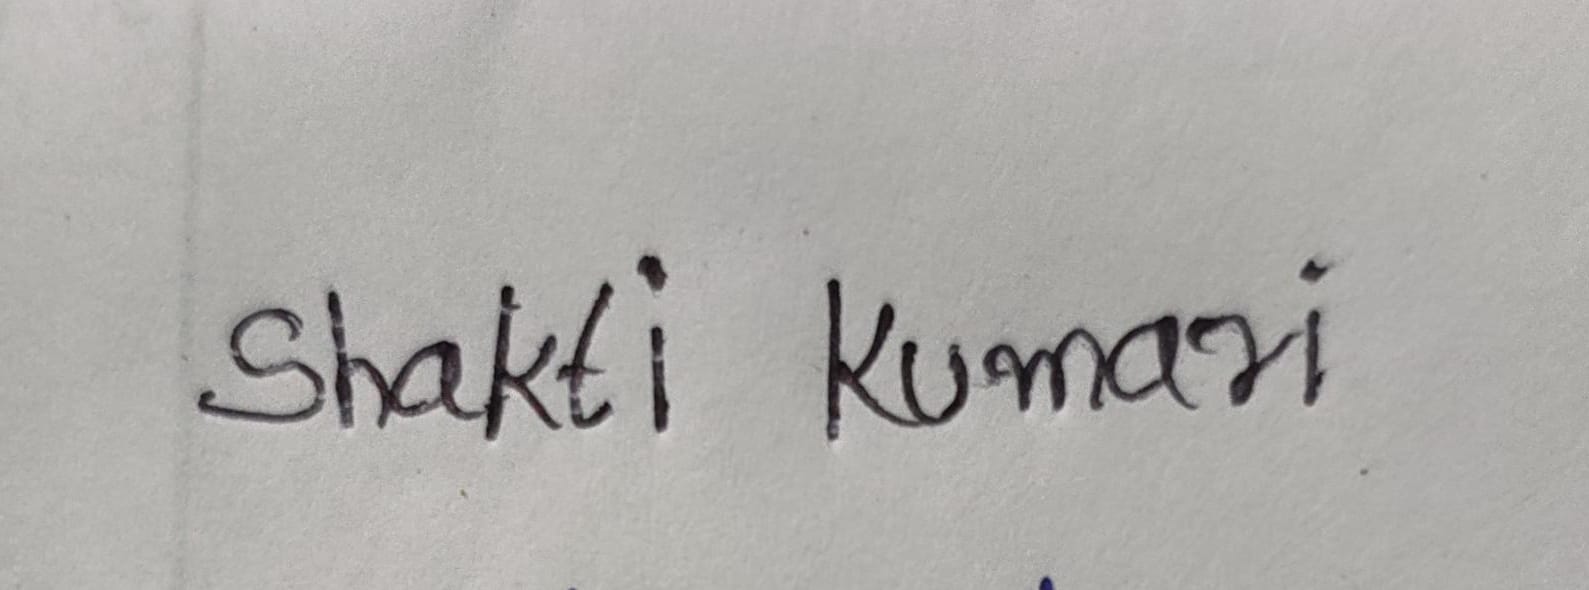 Shakti Kumari